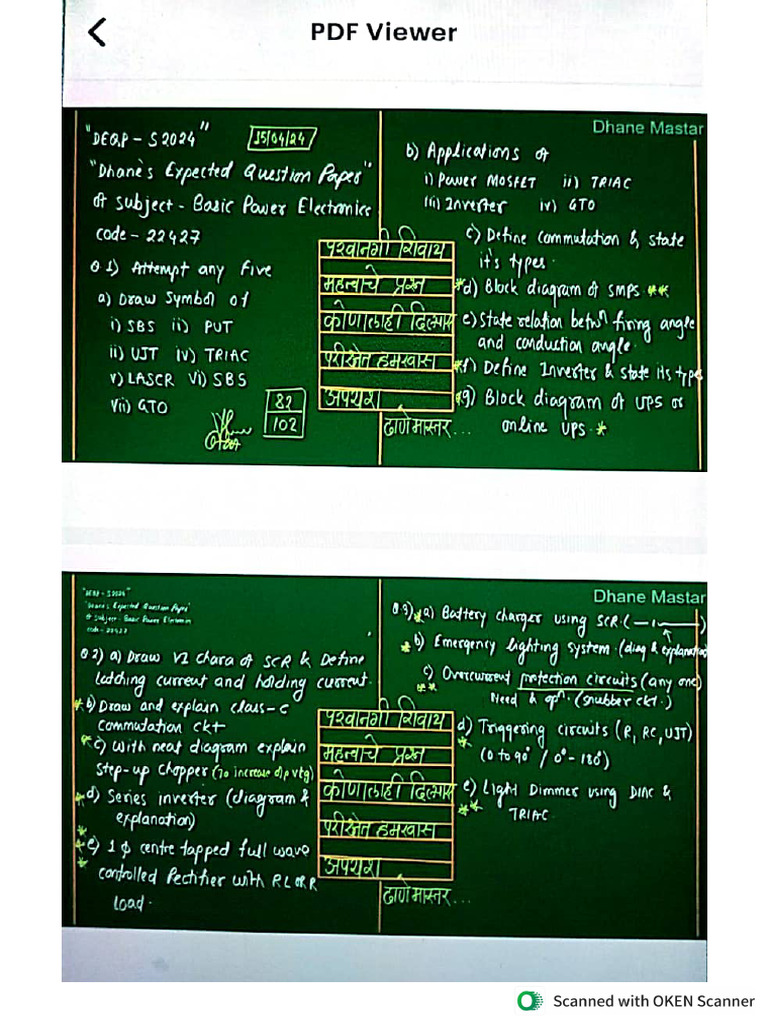 PDF Viewer
Dhane Mastar
"DEQP - S2024"
15/04/24
"Dhane's Expected Question Paper"
of Subject - Basic Power Electronics
Code - 22427
Q.1) Attempt any five
a) Draw Symbol of
i) SBS ii) PUT
ii) UJT iv) TRIAC
v) LASCR vi) SBS
vii) GTO
82
102
b) Applications of
i) Power MOSFET ii) TRIAC
iii) Inverter iv) GTO
c) Define Commutation & state
it's types.
*d) Block diagram of SMPS **
e) State relation betwn firing angle
and conduction angle.
*f) Define Inverter & state its type
*g) Block diagram of UPS or
online UPS. *
परवानगी शिवाय
महत्वाचे प्रश्न
कोणालाही दिल्यास
परीक्षेत हमखास
अपयश
ढाणे मास्तर...
Dhane Mastar
"DEQP - S2024"
"Dhane's Expected Question Paper"
of Subject - Basic Power Electronics
Code - 22427
Q.2) a) Draw VI chara of SCR & Define
Latching current and holding current.
*b) Draw and explain class-c
commutation ckt
*c) With neat diagram explain
Step-up Chopper (To increase o/p vtg)
*d) Series inverter (diagram &
explanation)
*
*e) 1ϕ centre tapped full wave
* controlled Rectifier with RL or R
Load.
Q.3) *a) Battery charger using SCR. (—ı—)
*b) Emergency lighting system (diag & explanation)
c) Overcurrent protection circuits (any one)
** Need & opn. (snubber ckt.)
d) Triggering circuits (R, RC, UJT)
* (0 to 90° / 0° - 180°)
e) Light Dimmer using DIAC &
** TRIAC
परवानगी शिवाय
महत्वाचे प्रश्न
कोणालाही दिल्यास
परीक्षेत हमखास
अपयश
ढाणे मास्तर...
Scanned with OKEN Scanner